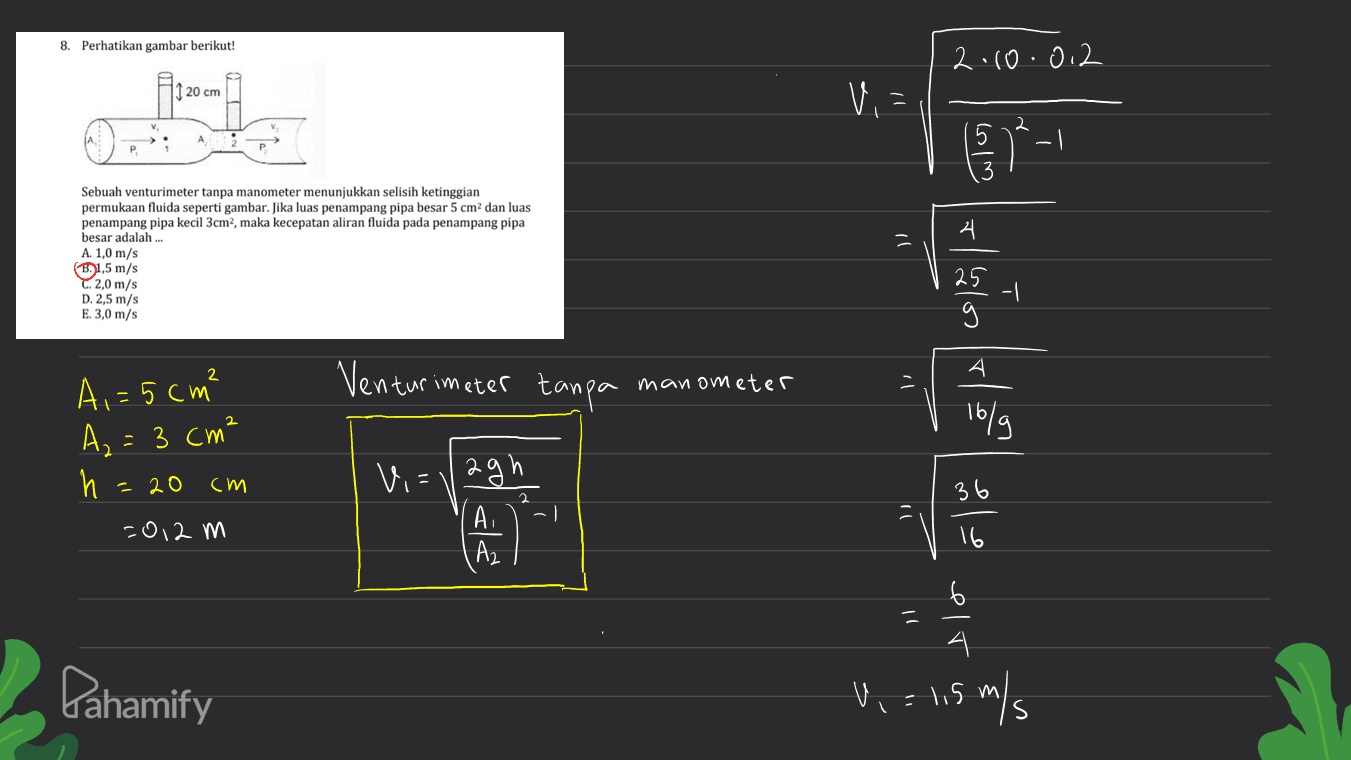 8. Perhatikan gambar berikut!
20 cm
A₁ P₁ V₁ 1 A₂ 2 P₂ V₂
Sebuah venturimeter tanpa manometer menunjukkan selisih ketinggian
permukaan fluida seperti gambar. Jika luas penampang pipa besar 5 cm² dan luas
penampang pipa kecil 3cm², maka kecepatan aliran fluida pada penampang pipa
besar adalah ...
A. 1,0 m/s
B. 1,5 m/s
C. 2,0 m/s
D. 2,5 m/s
E. 3,0 m/s
A₁ = 5 cm²
A₂ = 3 cm²
h = 20 cm
= 0,2 m
Venturimeter tanpa manometer
V₁ = √(2gh / ((A₁/A₂)² - 1))
V₁ = √(2.10.0,2 / ((5/3)² - 1))
= √(4 / (25/9 - 1))
= √(4 / (16/9))
= √(36/16)
= 6/4
V₁ = 1,5 m/s
Pahamify